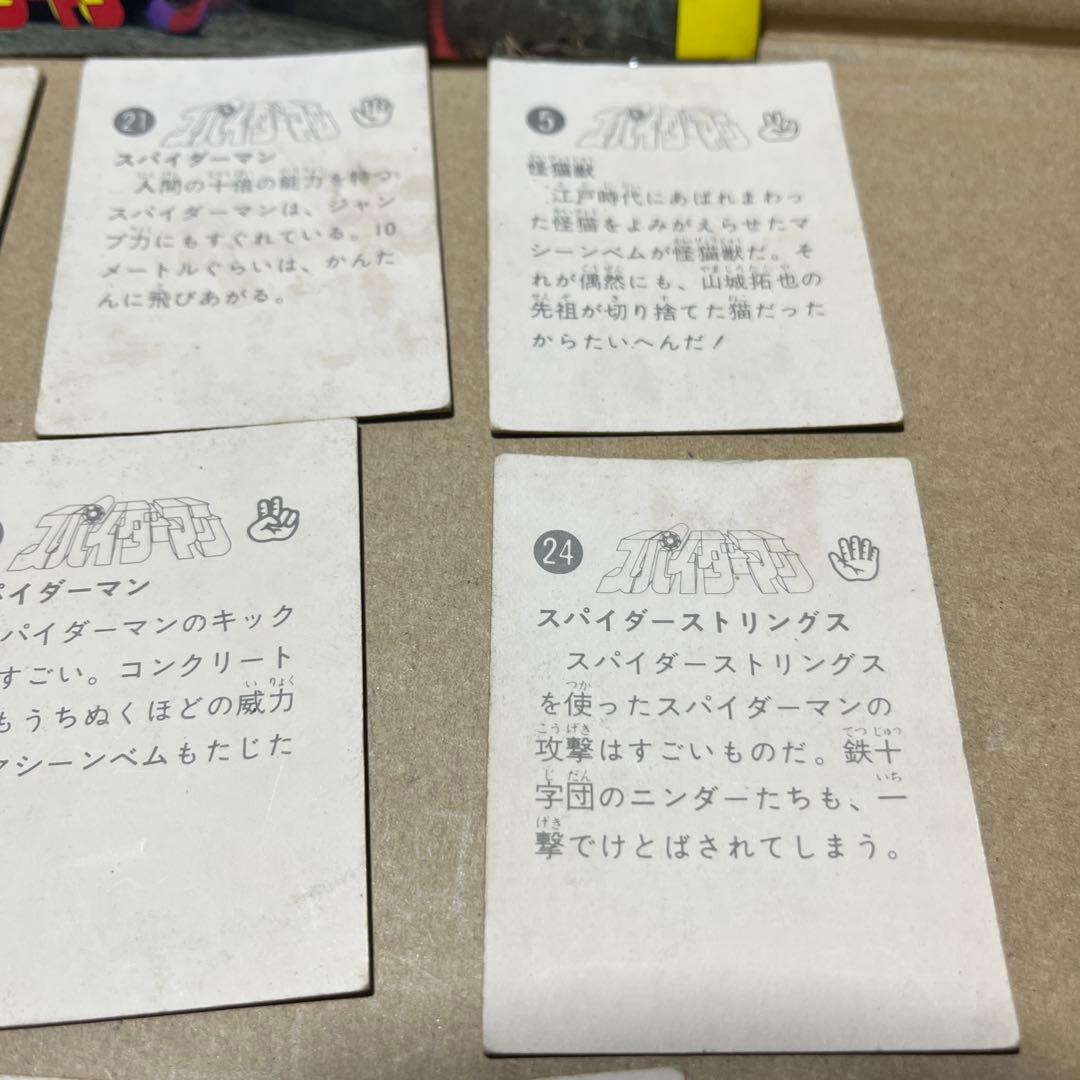 21
スパイダーマン
スパイダーマン
人間の十倍の能力を持つ
スパイダーマンは、ジャン
プ力にもすぐれている。10
メートルぐらいは、かんた
んに飛びあがる。
5
スパイダーマン
怪猫獣
江戸時代にあばれまわっ
た怪猫をよみがえらせたマ
シーンベムが怪猫獣だ。そ
れが偶然にも、山城拓也の
先祖が切り捨てた猫だった
からたいへんだ!
スパイダーマン
パイダーマン
パイダーマンのキック
すごい。コンクリート
もうちぬくほどの威力
シーンベムもたじた
24
スパイダーマン
スパイダーストリングス
スパイダーストリングス
を使ったスパイダーマンの
攻撃はすごいものだ。鉄十
字団のニンダーたちも、一
撃でけとばされてしまう。